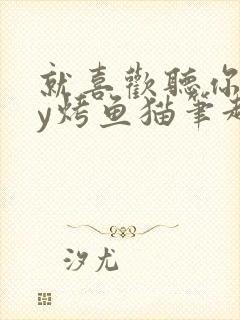 就喜歡聽你
y烤鱼猫筆趣
汐尤